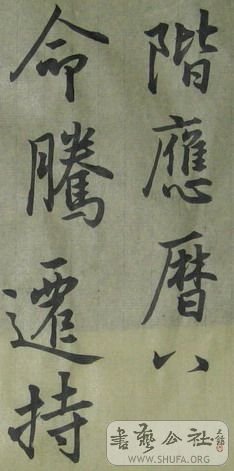 階應暦八
命騰遷持
書藝公社
WWW.SHUFA.ORG